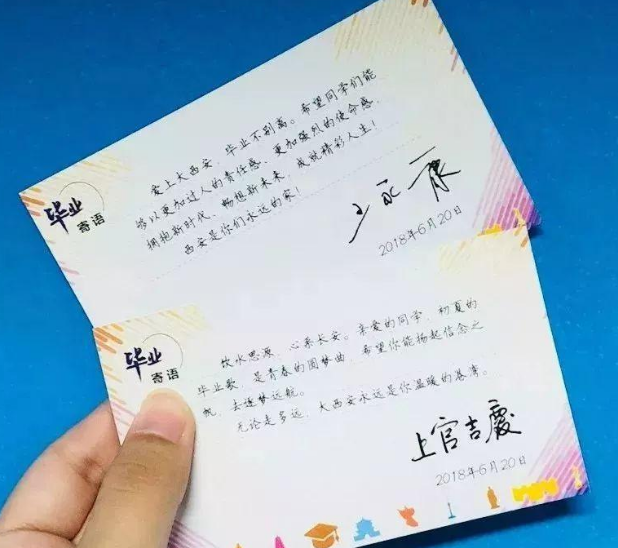 毕业
寄语
爱上大西安，毕业不别离。希望同学们能
够以更加过人的责任感、更加强烈的使命感，
拥抱新时代、畅想新未来，成就精彩人生！
西安是你们永远的家！
王永康
2018年6月20日
毕业
寄语
饮水思源，心系长安。亲爱的同学，初夏的
毕业歌，是青春的圆梦曲，希望你能扬起信念之
帆，去逐梦远航。
无论走多远，大西安永远是你温暖的港湾。
上官吉慶
2018年6月20日